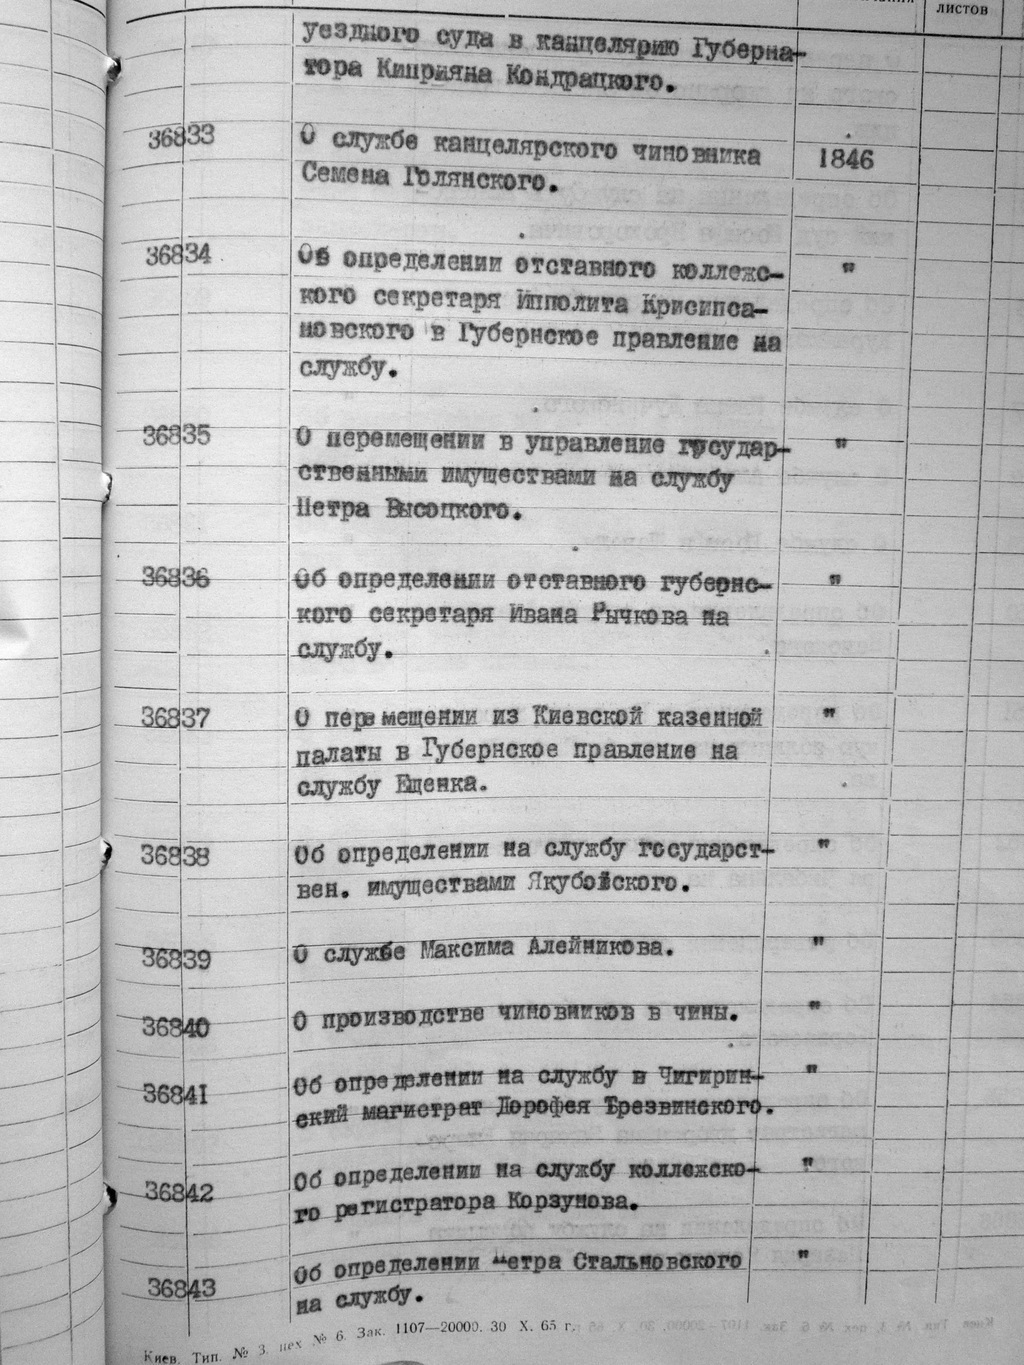 листов
уездного суда в канцелярию Губерна-
тора Киприяна Кондрацкого.
36833 О службе канцелярского чиновника 1846
Семена Голянского.
36834 Об определении отставного коллежс- "
кого секретаря Ипполита Крисипса-
новского в Губернское правление на
службу.
36835 О перемещении в управление государ- "
ственными имуществами на службу
Петра Высоцкого.
36836 Об определении отставного губернс- "
кого секретаря Ивана Рычкова на
службу.
36837 О перемещении из Киевской казенной "
палаты в Губернское правление на
службу Ещенка.
36838 Об определении на службу государст- "
вен. имуществами Якубовского.
36839 О службе Максима Алейникова. "
36840 О производстве чиновников в чины. "
36841 Об определении на службу в Чигирин- "
ский магистрат Дорофея Трезвинского.
36842 Об определении на службу коллежско- "
го регистратора Корзунова.
36843 Об определении Петра Стальновского "
на службу.
Киев. Тип. № 3, цех № 6. Зак. 1107—20000. 30 X. 65 г.